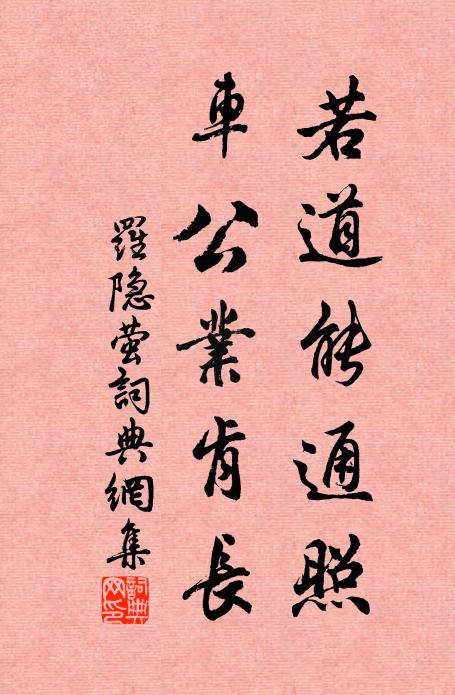 若道能通照
車公業肯長
羅隐萤詞典網集
詞典网印